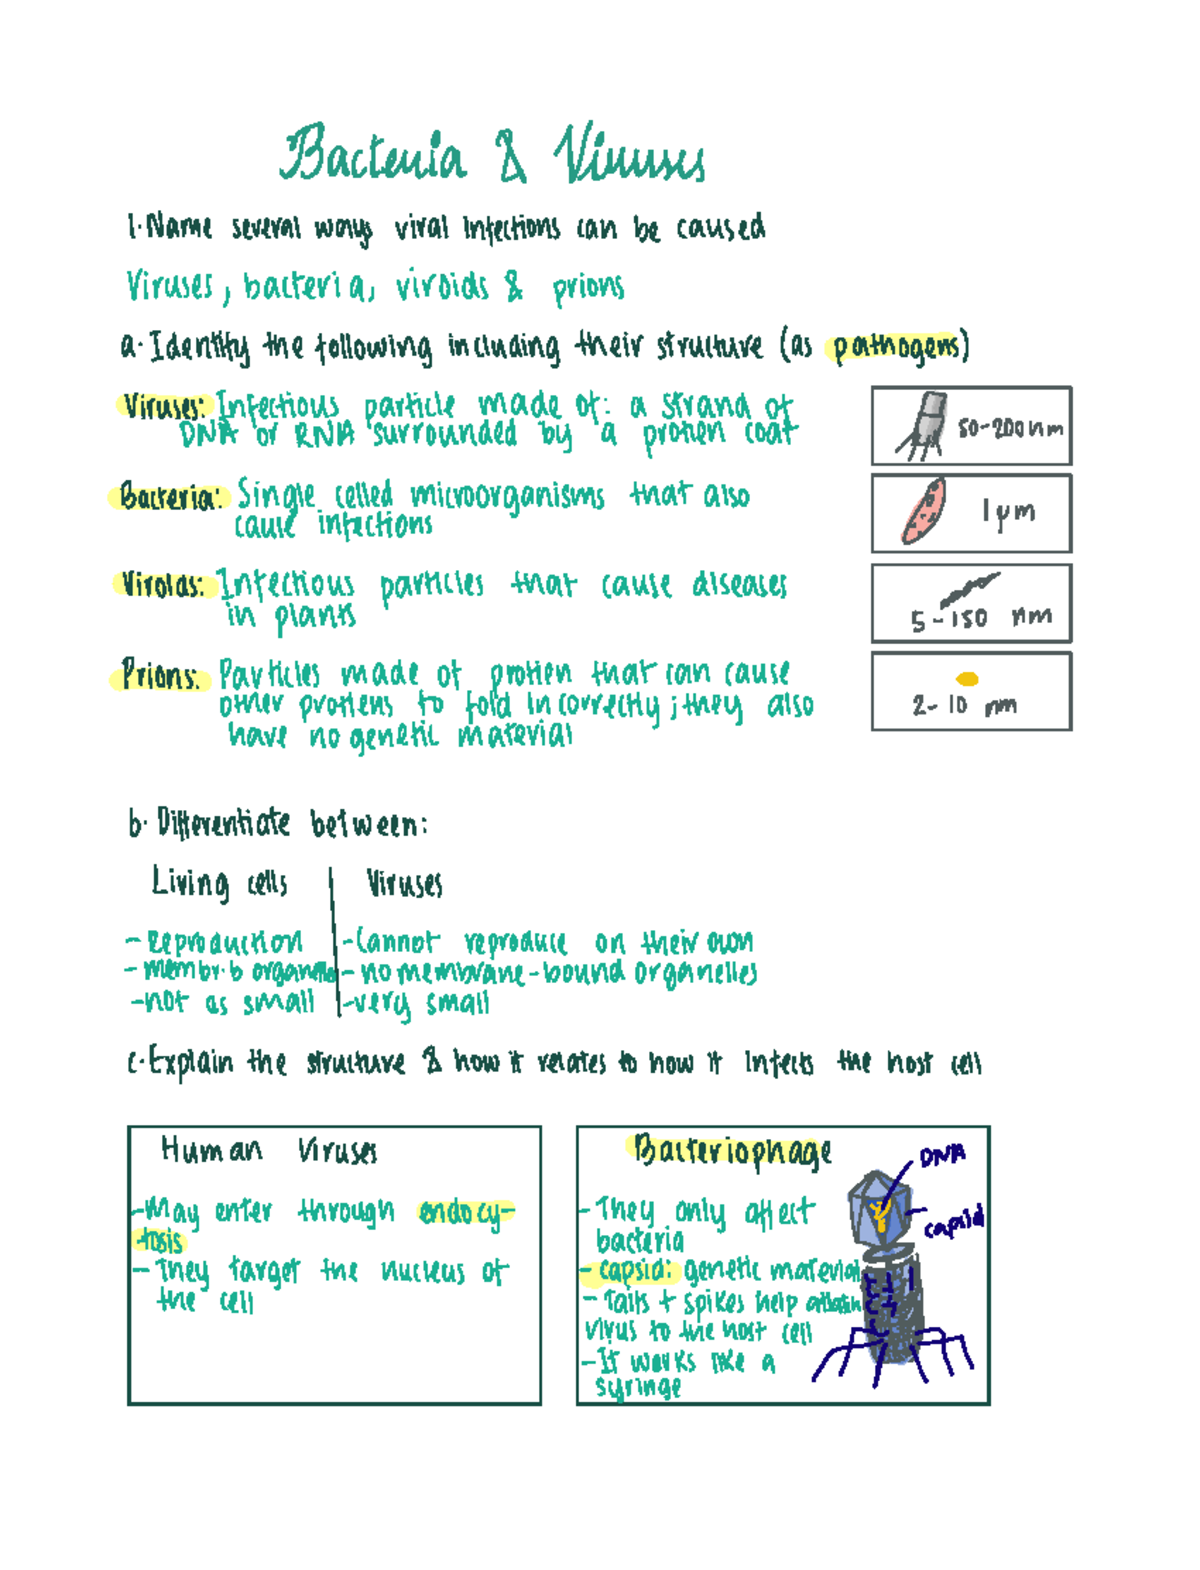 Bacteria & Viruses
1. Name several ways viral infections can be caused
Viruses, bacteria, viroids & prions
a. Identify the following including their structure (as pathogens)
Viruses: Infectious particle made of: a strand of
DNA or RNA surrounded by a protien coat
50-200nm
Bacteria: Single celled microorganisms that also
cause infections
1 μm
Viroids: Infectious particles that cause diseases
in plants
5-150 nm
Prions: Particles made of protien that can cause
other protiens to fold incorrectly; they also
have no genetic material
2-10 nm
b. Differentiate between:
Living cells
Viruses
- Reproduction
- Cannot reproduce on their own
- membr. b organelle
- no membrane-bound organelles
- not as small
- very small
c. Explain the structure & how it relates to how it infects the host cell
Human Viruses
- May enter through endocy-
tosis
- They target the nucleus of
the cell
Bacteriophage
- They only affect
bacteria
- capsid: genetic material
- Tails + spikes help attach
virus to the host cell
- It works like a
syringe
DNA
capsid